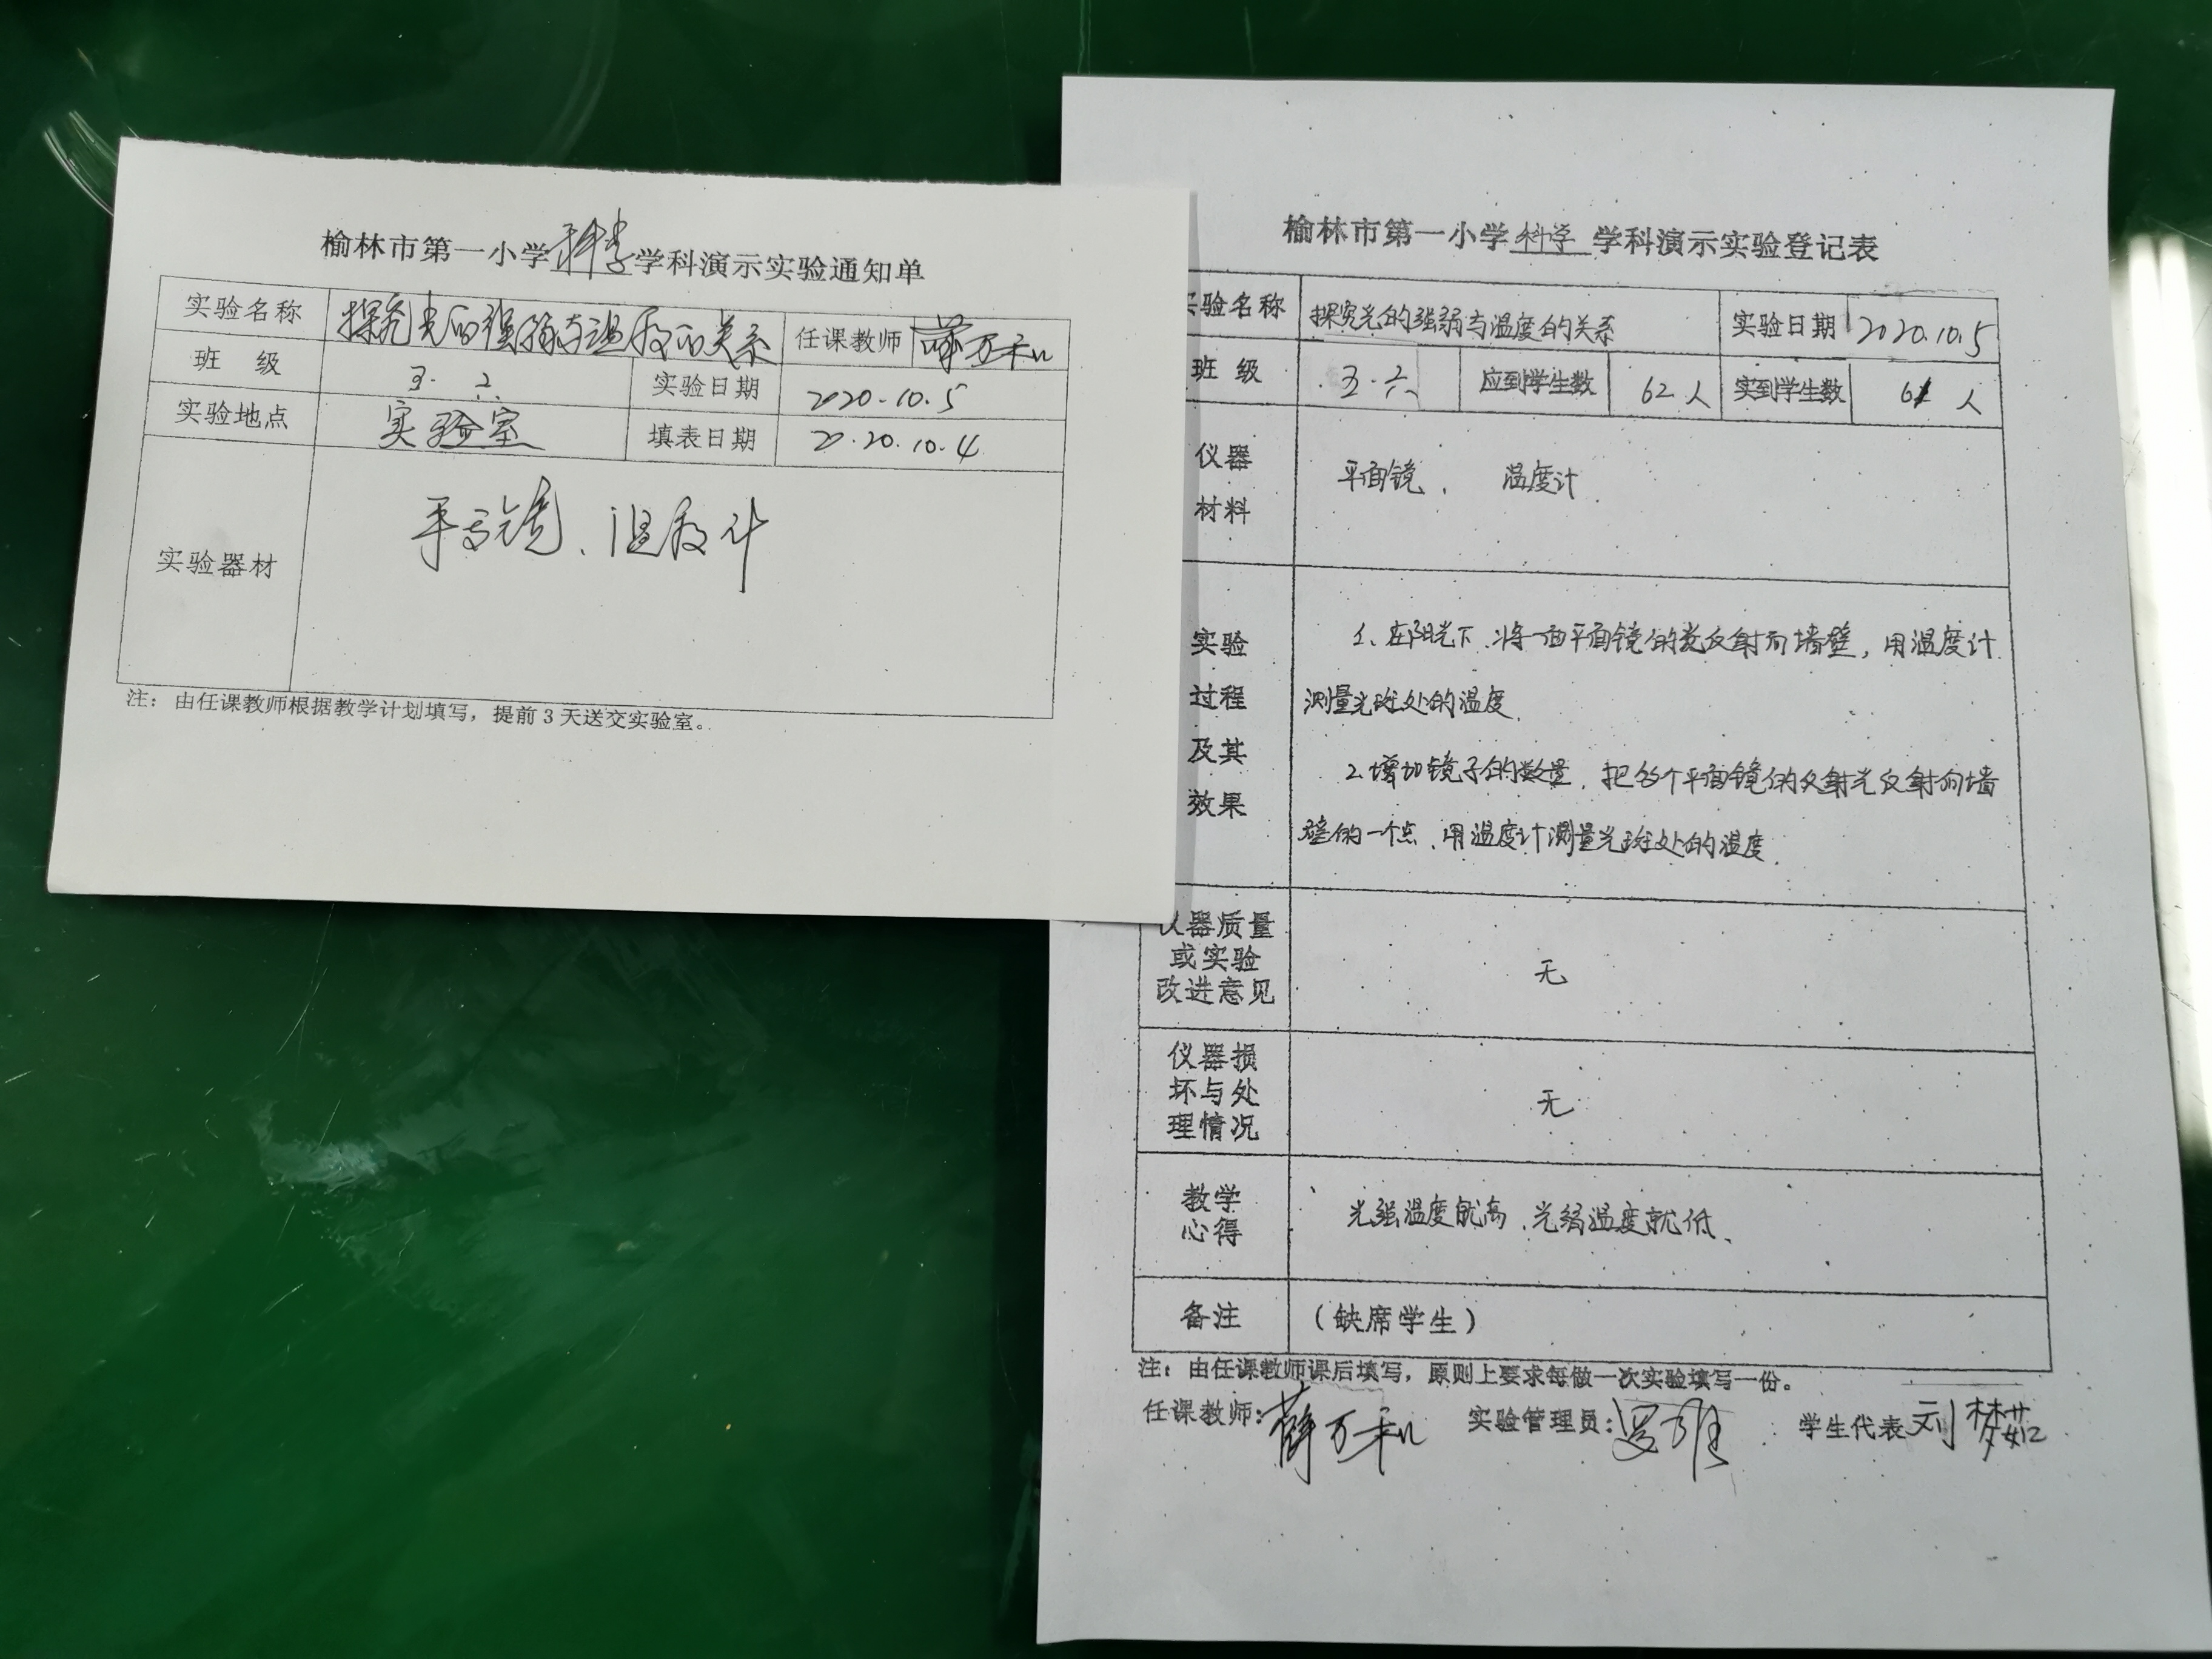 榆林市第一小学科学学科演示实验通知单
实验名称 探究光的强弱与温度的关系 任课教师 薛万和
班 级 3.六 实验日期 2020.10.5
实验地点 实验室 填表日期 2020.10.4
实验器材 平面镜、温度计
注：由任课教师根据教学计划填写，提前3天送交实验室。
榆林市第一小学科学学科演示实验登记表
实验名称 探究光的强弱与温度的关系 实验日期 2020.10.5
班级 3.六 应到学生数 62人 实到学生数 人
仪器
材料
平面镜、 温度计
实验
过程
及其
效果
1、在阳光下、将一面平面镜的光反射向墙壁，用温度计
测量光斑处的温度.
2.增加镜子的数量，把多个平面镜的反射光反射向墙
壁的一个点、用温度计测量光斑处的温度.
仪器质量
或实验
改进意见
无
仪器损
坏与处
理情况
无
教学
心得
光强温度就高、光弱温度就低、
备注 （缺席学生）
注：由任课教师课后填写，原则上要求每做一次实验填写一份。
任课教师：薛万和 实验管理员： 学生代表 刘梦茹